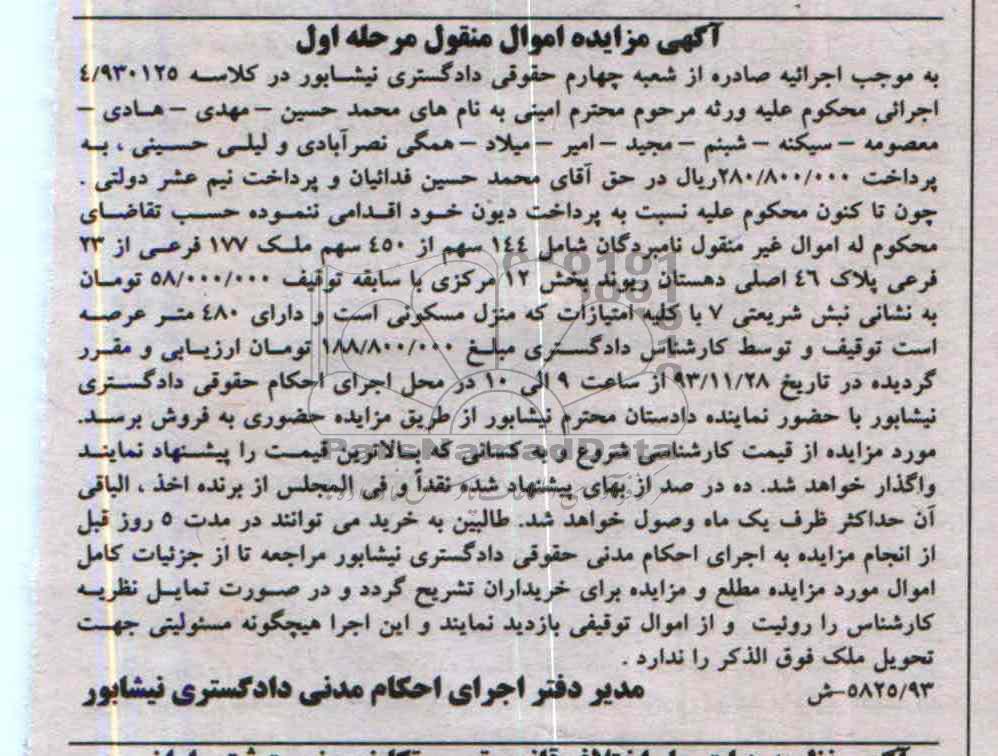 آگهی مزایده اموال منقول مرحله اول
به موجب اجرائیه صادره از شعبه چهارم حقوقی دادگستری نیشابور در کلاسه ٤/٩٣٠١٢٥
اجرائی محکوم علیه ورثه مرحوم محترم امینی به نام های محمد حسین – مهدی – هادی –
معصومه – سیکنه – شبنم – مجید – امیر – میلاد – همگی نصرآبادی و لیلی حسینی ، به
پرداخت ۲۸۰/۸۰۰/۰۰۰ریال در حق آقای محمد حسین فدائیان و پرداخت نیم عشر دولتی .
چون تا کنون محکوم علیه نسبت به پرداخت دیون خود اقدامی ننموده حسب تقاضای
محکوم له اموال غیر منقول نامبردگان شامل ١٤٤ سهم از ٤٥٠ سهم ملک ١٧٧ فرعی از ٢٣
فرعی پلاک ٤٦ اصلی دهستان ریوند بخش ١٢ مرکزی با سابقه توقیف ٥٨/٠٠٠/٠٠٠ تومان
به نشانی نبش شریعتی ٧ با کلیه امتیازات که منزل مسکونی است و دارای ٤٨٠ متر عرصه
است توقیف و توسط کارشناس دادگستری مبلغ ١٨٨/٨٠٠/٠٠٠ تومان ارزیابی و مقرر
گردیده در تاریخ ٩٣/١١/٢٨ از ساعت ٩ الی ١٠ در محل اجرای احکام حقوقی دادگستری
نیشابور با حضور نماینده دادستان محترم نیشابور از طریق مزایده حضوری به فروش برسد.
مورد مزایده از قیمت کارشناسی شروع و به کسانی که بالاترین قیمت را پیشنهاد نمایند
واگذار خواهد شد. ده در صد از بهای پیشنهاد شده نقداً و فی المجلس از برنده اخذ ، الباقی
آن حداکثر ظرف یک ماه وصول خواهد شد. طالبین به خرید می توانند در مدت ٥ روز قبل
از انجام مزایده به اجرای احکام مدنی حقوقی دادگستری نیشابور مراجعه تا از جزئیات کامل
اموال مورد مزایده مطلع و مزایده برای خریداران تشریح گردد و در صورت تمایل نظریه
کارشناس را روئیت و از اموال توقیفی بازدید نمایند و این اجرا هیچگونه مسئولیتی جهت
تحویل ملک فوق الذکر را ندارد .
٥٨٢٥/٩٣-ش مدیر دفتر اجرای احکام مدنی دادگستری نیشابور
ParsNamadData